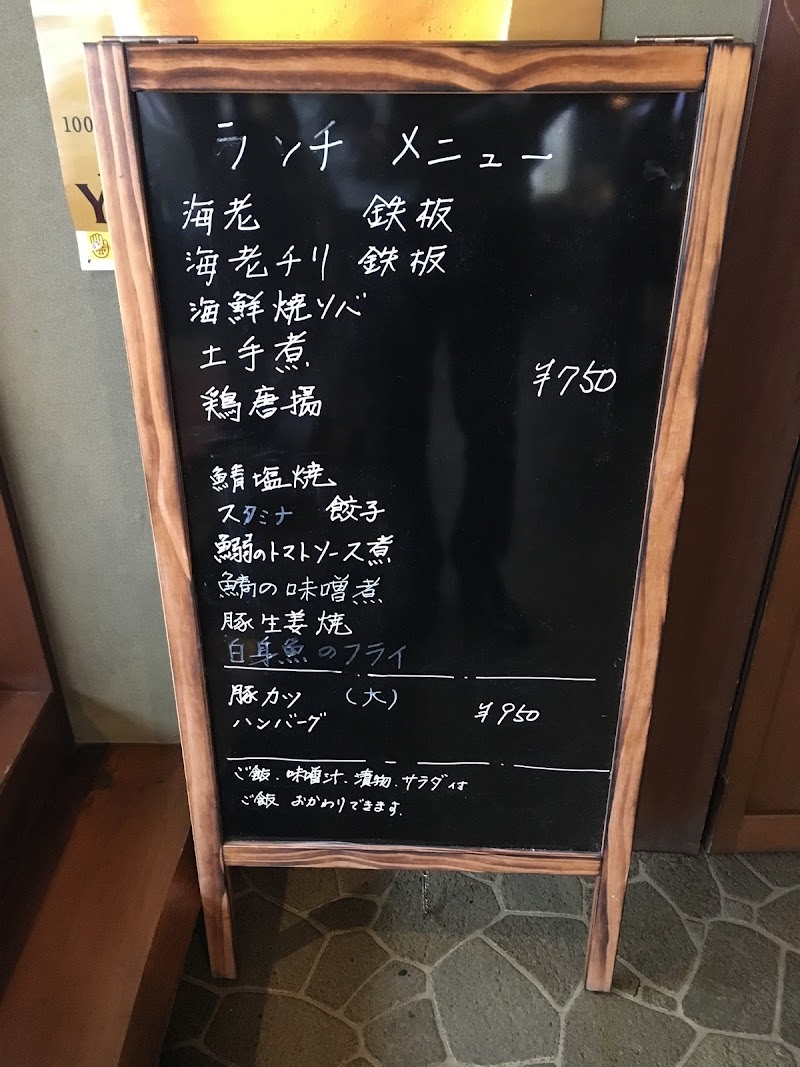 100
Y
ランチ メニュー
海老 鉄板
海老チリ 鉄板
海鮮焼ソバ
土手煮
¥750
鶏唐揚
鯖塩焼
スタミナ 餃子
鰯のトマトソース煮
鯖の味噌煮
豚生姜焼
白身魚のフライ
豚カツ (大)
¥950
ハンバーグ
ご飯、味噌汁、漬物、サラダ付
ご飯 おかわりできます。